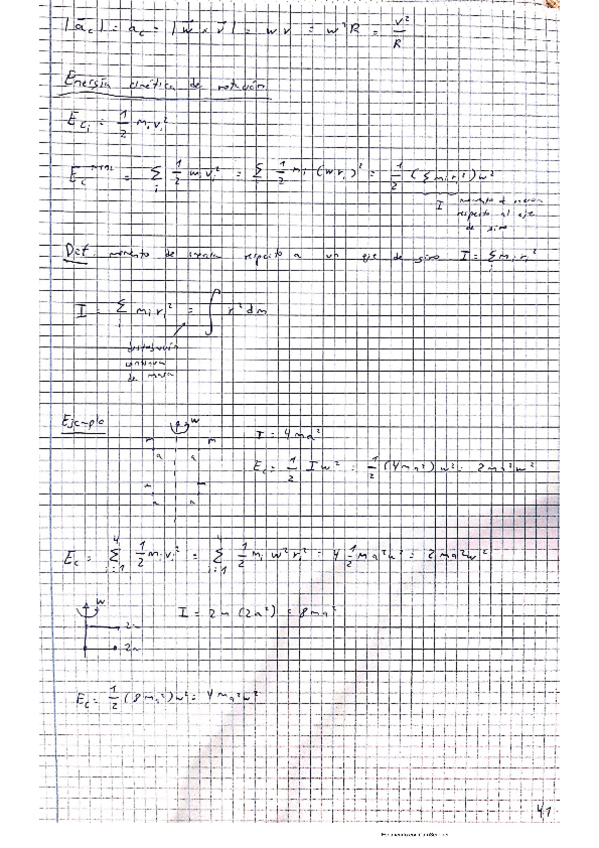 |a⃗c| = ac = |w⃗ x v⃗| = w v = w²R = v²/R
Energía cinética de rotación
Eci = 1/2 mi vi²
Ec = Σi 1/2 mi vi² = Σi 1/2 mi (w ri)² = 1/2 (Σ mi ri²) w²
I momento de inercia
respecto al eje
de giro
Def: momento de inercia respecto a un eje de giro I = Σi mi ri²
I = Σi mi ri² = ∫ r² dm
distribución
continua
de masa
Ejemplo
w
m m
a a
I = 4ma²
Ec = 1/2 I w² = 1/2 (4ma²) w² = 2ma²w²
a a
Ec = Σ i=1 4 1/2 mi vi² = Σ i=1 4 1/2 mi w² ri² = 4 1/2 ma²w² = 2ma²w²
w
I = 2m (2a)² = 8ma²
Ec = 1/2 (8ma²) w² = 4ma²w²
41